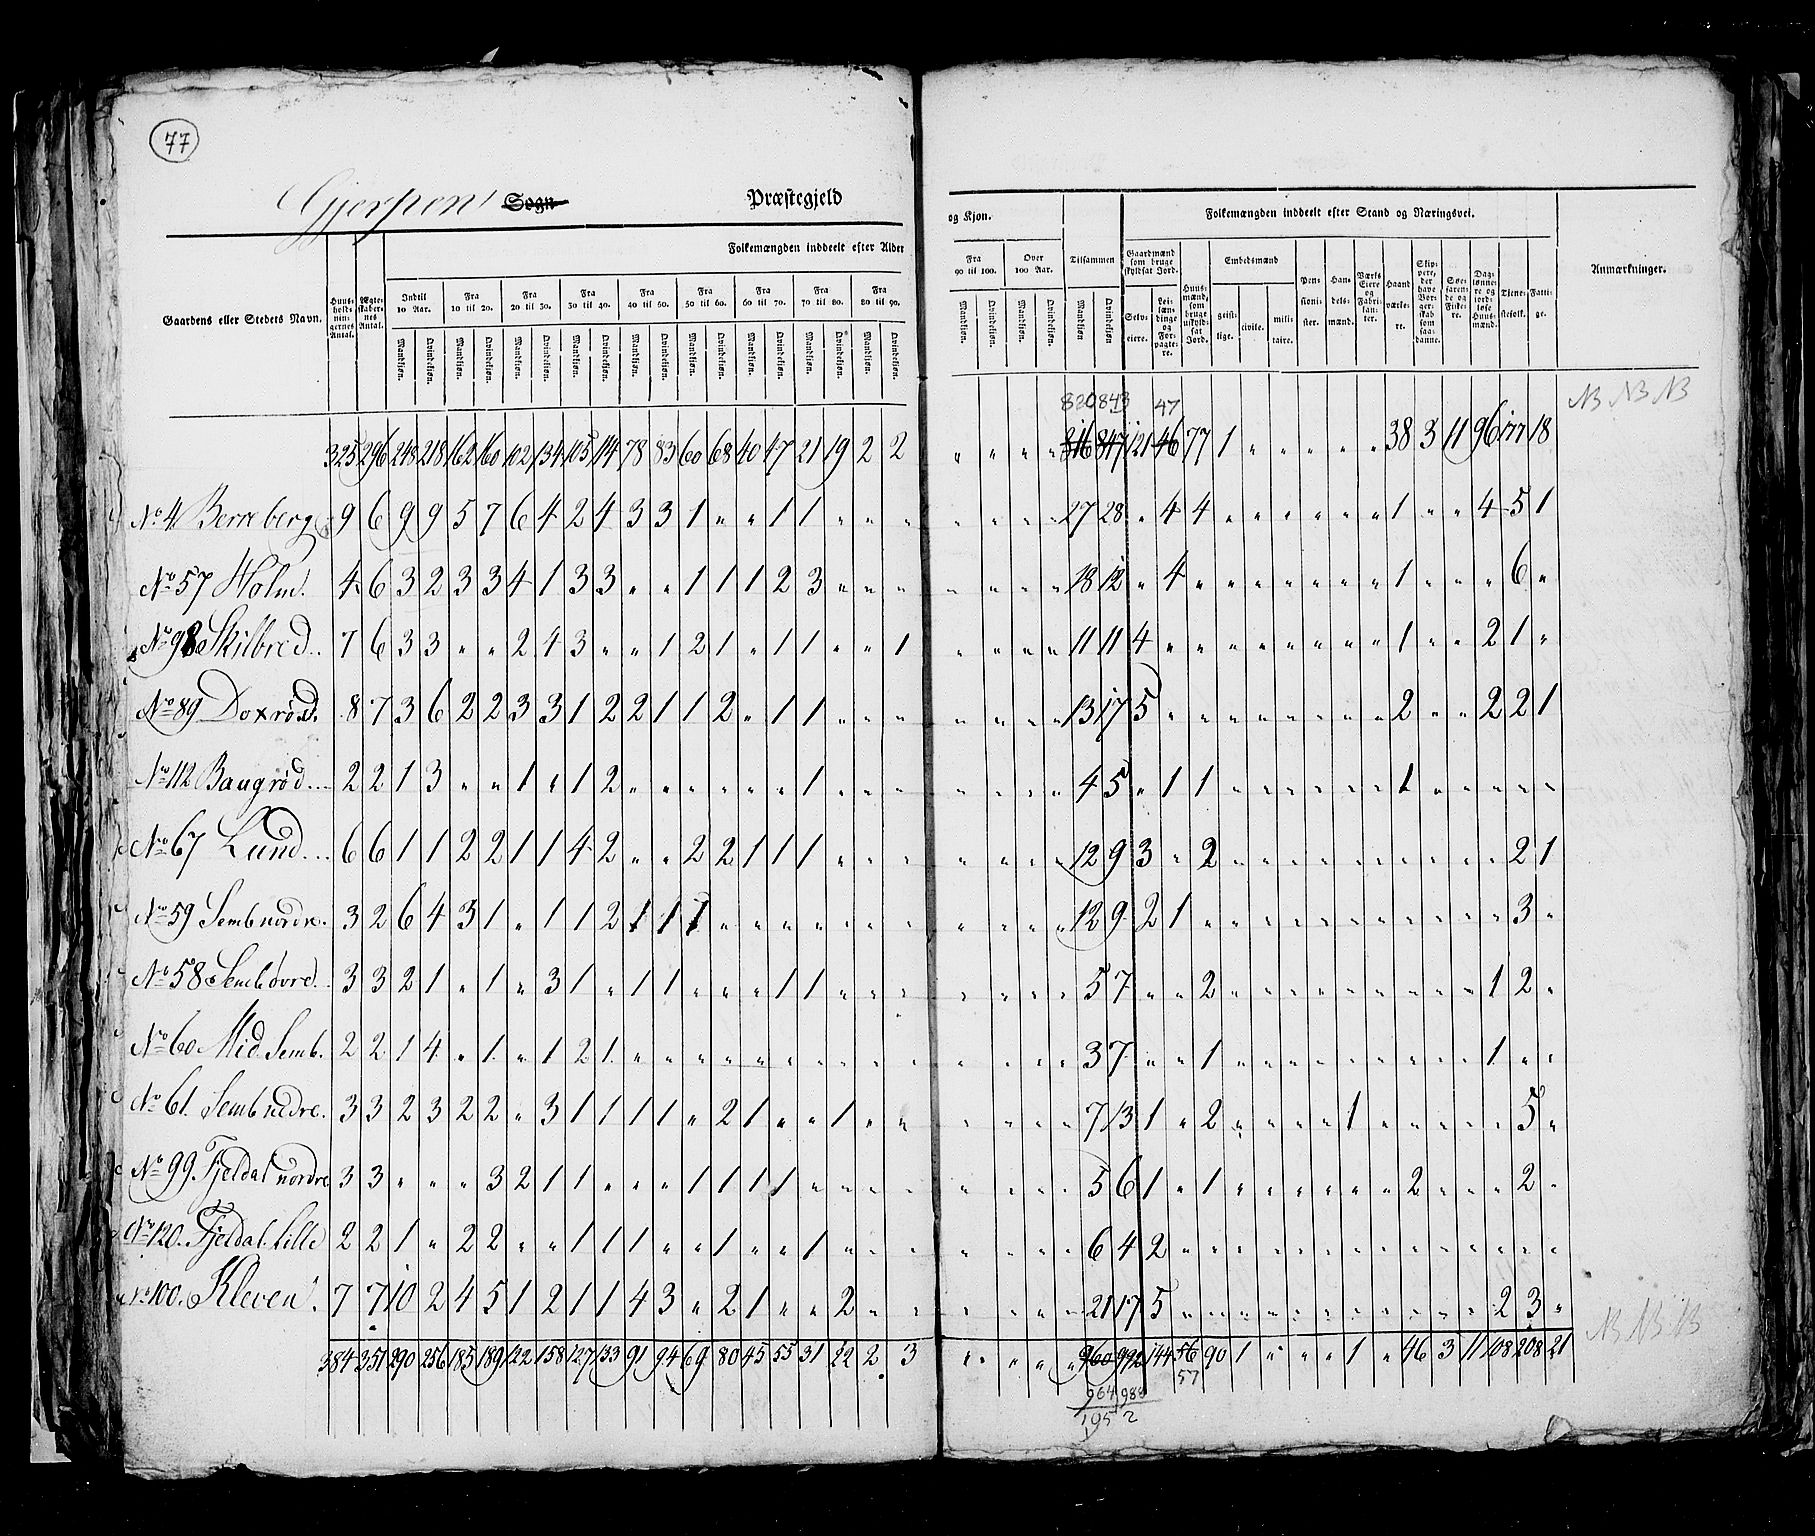 77
Gjerpens Sogn Præstegjeld
Gaardens eller Stedets Navn.
Huus-holdnin-gernes Antal.
Ægte-skaber-nes Antal.
Folkemængden inddeelt efter Alder og Kjøn.
Indtil 10 Aar.
Fra 10 til 20.
Fra 20 til 30.
Fra 30 til 40.
Fra 40 til 50.
Fra 50 til 60.
Fra 60 til 70.
Fra 70 til 80.
Fra 80 til 90.
Fra 90 til 100.
Over 100 Aar.
Tilsammen
Mandkjøn. Qvindekjøn
Folkemængden inddeelt efter Stand og Næringsvei.
Gaardmænd som bruge skyldsat Jord.
Selv-eiere.
Lei-læn-dinge og For-pagte-re.
Huus-mænd, som bruge uskyld-sat Jord.
Embedsmænd
geist-lige. civile. mili-taire.
Pen-sioni-ster.
Han-dels-mænd.
Værks Eiere og Fabri-kan-ter.
Haand værke-re.
Skip-pere, der have Bor-ger-skab som saa-danne.
Søe-faren-de og Fiske-re.
Dag-lønne-re og jord-løse Huus-mænd.
Tjene-stefolk.
Fatti-ge.
Anmærkninger.
820 843 47 NB NB NB
325 296 243 218 162 160 102 134 105 114 78 83 60 68 40 47 21 19 2 2 " " " " 816 847 121 46 77 1 " " " " " " 38 3 11 96 177 18
No 4 Berreberg 9 6 9 9 5 7 6 4 2 4 3 3 1 " " 1 1 " " " " " " " 27 28 " 4 4 " " " " " " 1 " " 4 5 1
No 57 Holm. 4 6 3 2 3 3 4 1 3 3 " " 1 1 1 2 3 " " " " " " " 18 12 " 4 " " " " " " " 1 " " " 6 "
No 98 Skilbred.. 7 6 3 3 " " 2 4 3 " " 1 2 1 " 1 1 " " 1 " " " " 11 11 4 " " " " " " " " 1 " " 2 1 "
No 89 Doxrød. 8 7 3 6 2 2 3 3 1 2 2 1 1 2 " 1 1 " " " " " " " 13 17 5 " " " " " " " " 2 " " 2 2 1
No 112 Baugrød... 2 2 1 3 " " 1 " 1 2 " " " " " " 1 " " " " " " " 4 5 " 1 1 " " " " " " 1 " " " " "
No 67 Lund... 6 6 1 1 2 2 1 1 4 2 " " 2 2 1 1 1 " " " " " " " 12 9 3 " 2 " " " " " " " " " " 2 1
No 59 Semb nordre. 3 2 6 4 3 1 " 1 1 2 1 1 1 " " " " " " " " " " " 12 9 2 1 " " " " " " " " " " " 3 "
No 58 Semb øvre. 3 3 2 1 " 1 " 3 1 " 1 1 " " " 1 1 " " " " " " " 5 7 " " 2 " " " " " " " " " 1 2 "
No 60 Mid Semb. 2 2 1 4 " 1 " 1 2 1 " " " " " " " " " " " " " " 3 7 " " 1 " " " " " " " " " 1 " "
No 61. Semb nedre. 3 3 2 3 2 2 " 3 1 1 1 1 " 2 1 " " 1 " " " " " " 7 13 1 " 2 " " " " 1 " " " " " 5 "
No 99. Fjeldal nordre 3 3 " " " 3 2 1 1 " " " 1 1 1 1 " " " " " " " " 5 6 1 " 1 " " " " " " 2 " " " 2 "
No 120. Fjeldal lille 2 2 1 " 2 2 " " 1 1 1 " " 1 " " 1 " " " " " " " 6 4 2 " " " " " " " " " " " " " "
No 100. Kleven. 7 7 10 2 4 5 1 2 1 1 4 3 " 2 1 " " 2 " " " " " " 21 17 5 " " " " " " " " " " " 2 3 "
384 351 290 256 185 189 122 158 127 133 91 94 69 80 45 55 31 22 2 3 " " " " 960 992 144 56 90 1 " " " " 1 " 46 3 11 108 208 21 NB NB NB
964 988 57
1952